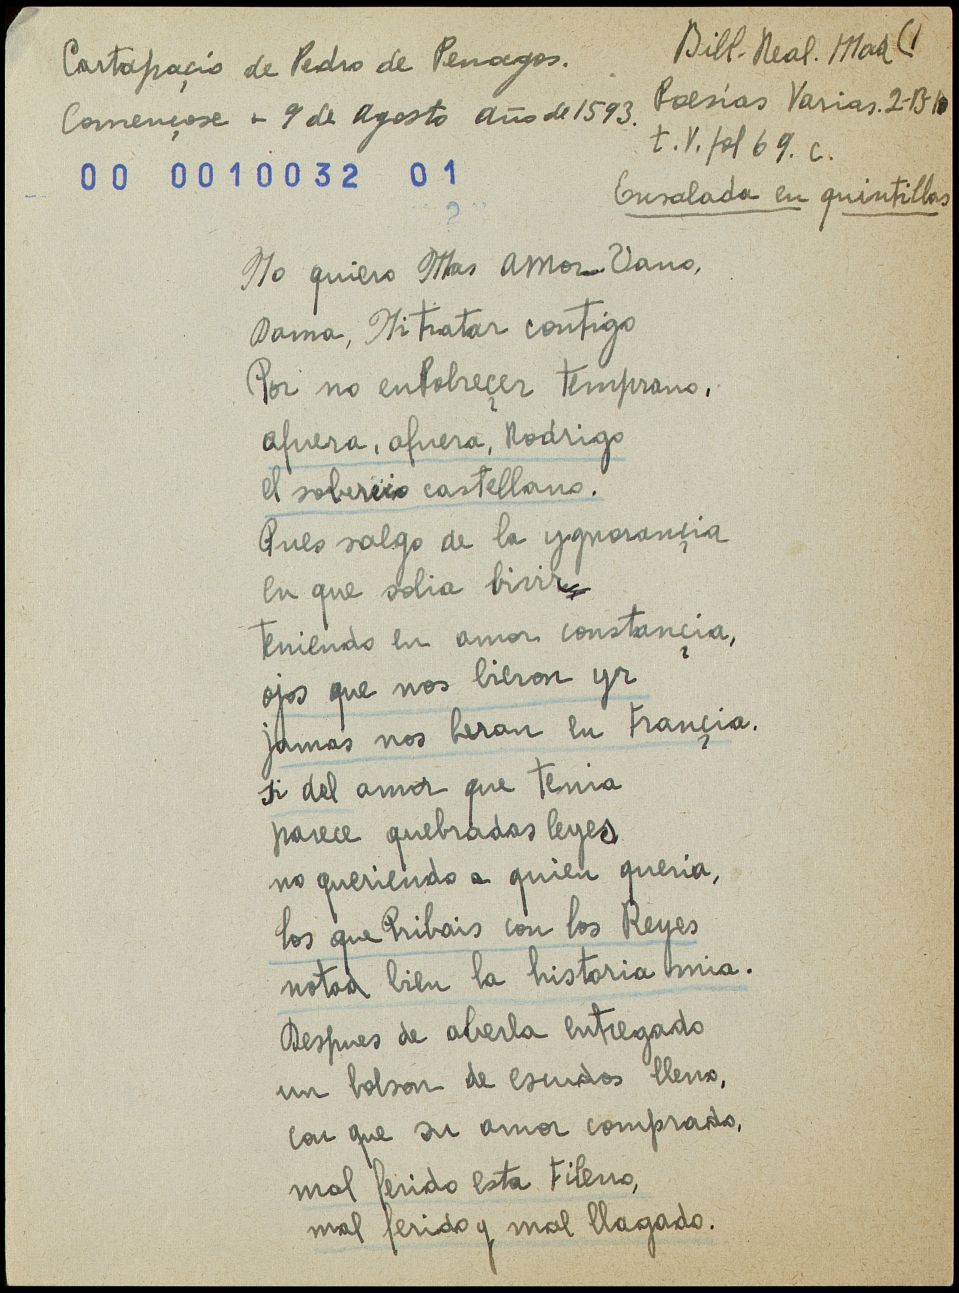 Cartapaçio de Pedro de Penagos.
Començose a 9 de Agosto Año de 1593.
Bill. Real. Mad (1
Poesías Varias. 2-B-10
t. V. fol 69. c.
Ensalada en quintillas
00 0010032 01
?
No quiero Mas amor Vano,
Dama, Ni tratar contigo
Por no enPobreçer temprano,
afuera, afuera, Rodrigo
el sobervio castellano.
Pues salgo de la ygnorançia
en que solia bivir
teniendo en amor constançia,
ojos que nos bieron yr
jamas nos beran en Françia.
si del amor que tenia
parece quebradas leyes
no queriendo a quien queria,
los que Pribais con los Reyes
notad bien la historia mia.
Despues de aberla entregado
un bolson de escudos lleno,
con que su amor comprado,
mal ferido esta Fileno,
mal ferido y mal llagado.